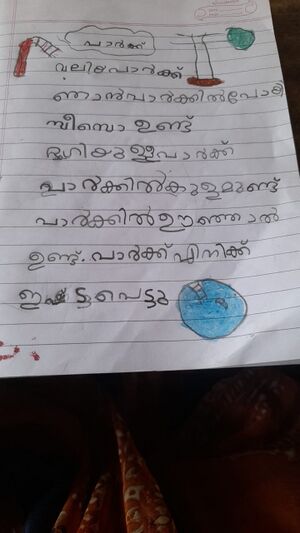 പാർക്ക്
വലിപോർക്ക്
ഞാൻപാർക്കിൽപോയി
സീസൊ ഉണ്ട്
ഭഗിയുള്ളപാർക്ക്
പാർക്കിൽകുളമുണ്ട്
പാർക്കിൽഊഞ്ഞാൽ
ഉണ്ട്. പാർക്ക് എനിക്ക്
ഇഷ്ടപെട്ടു